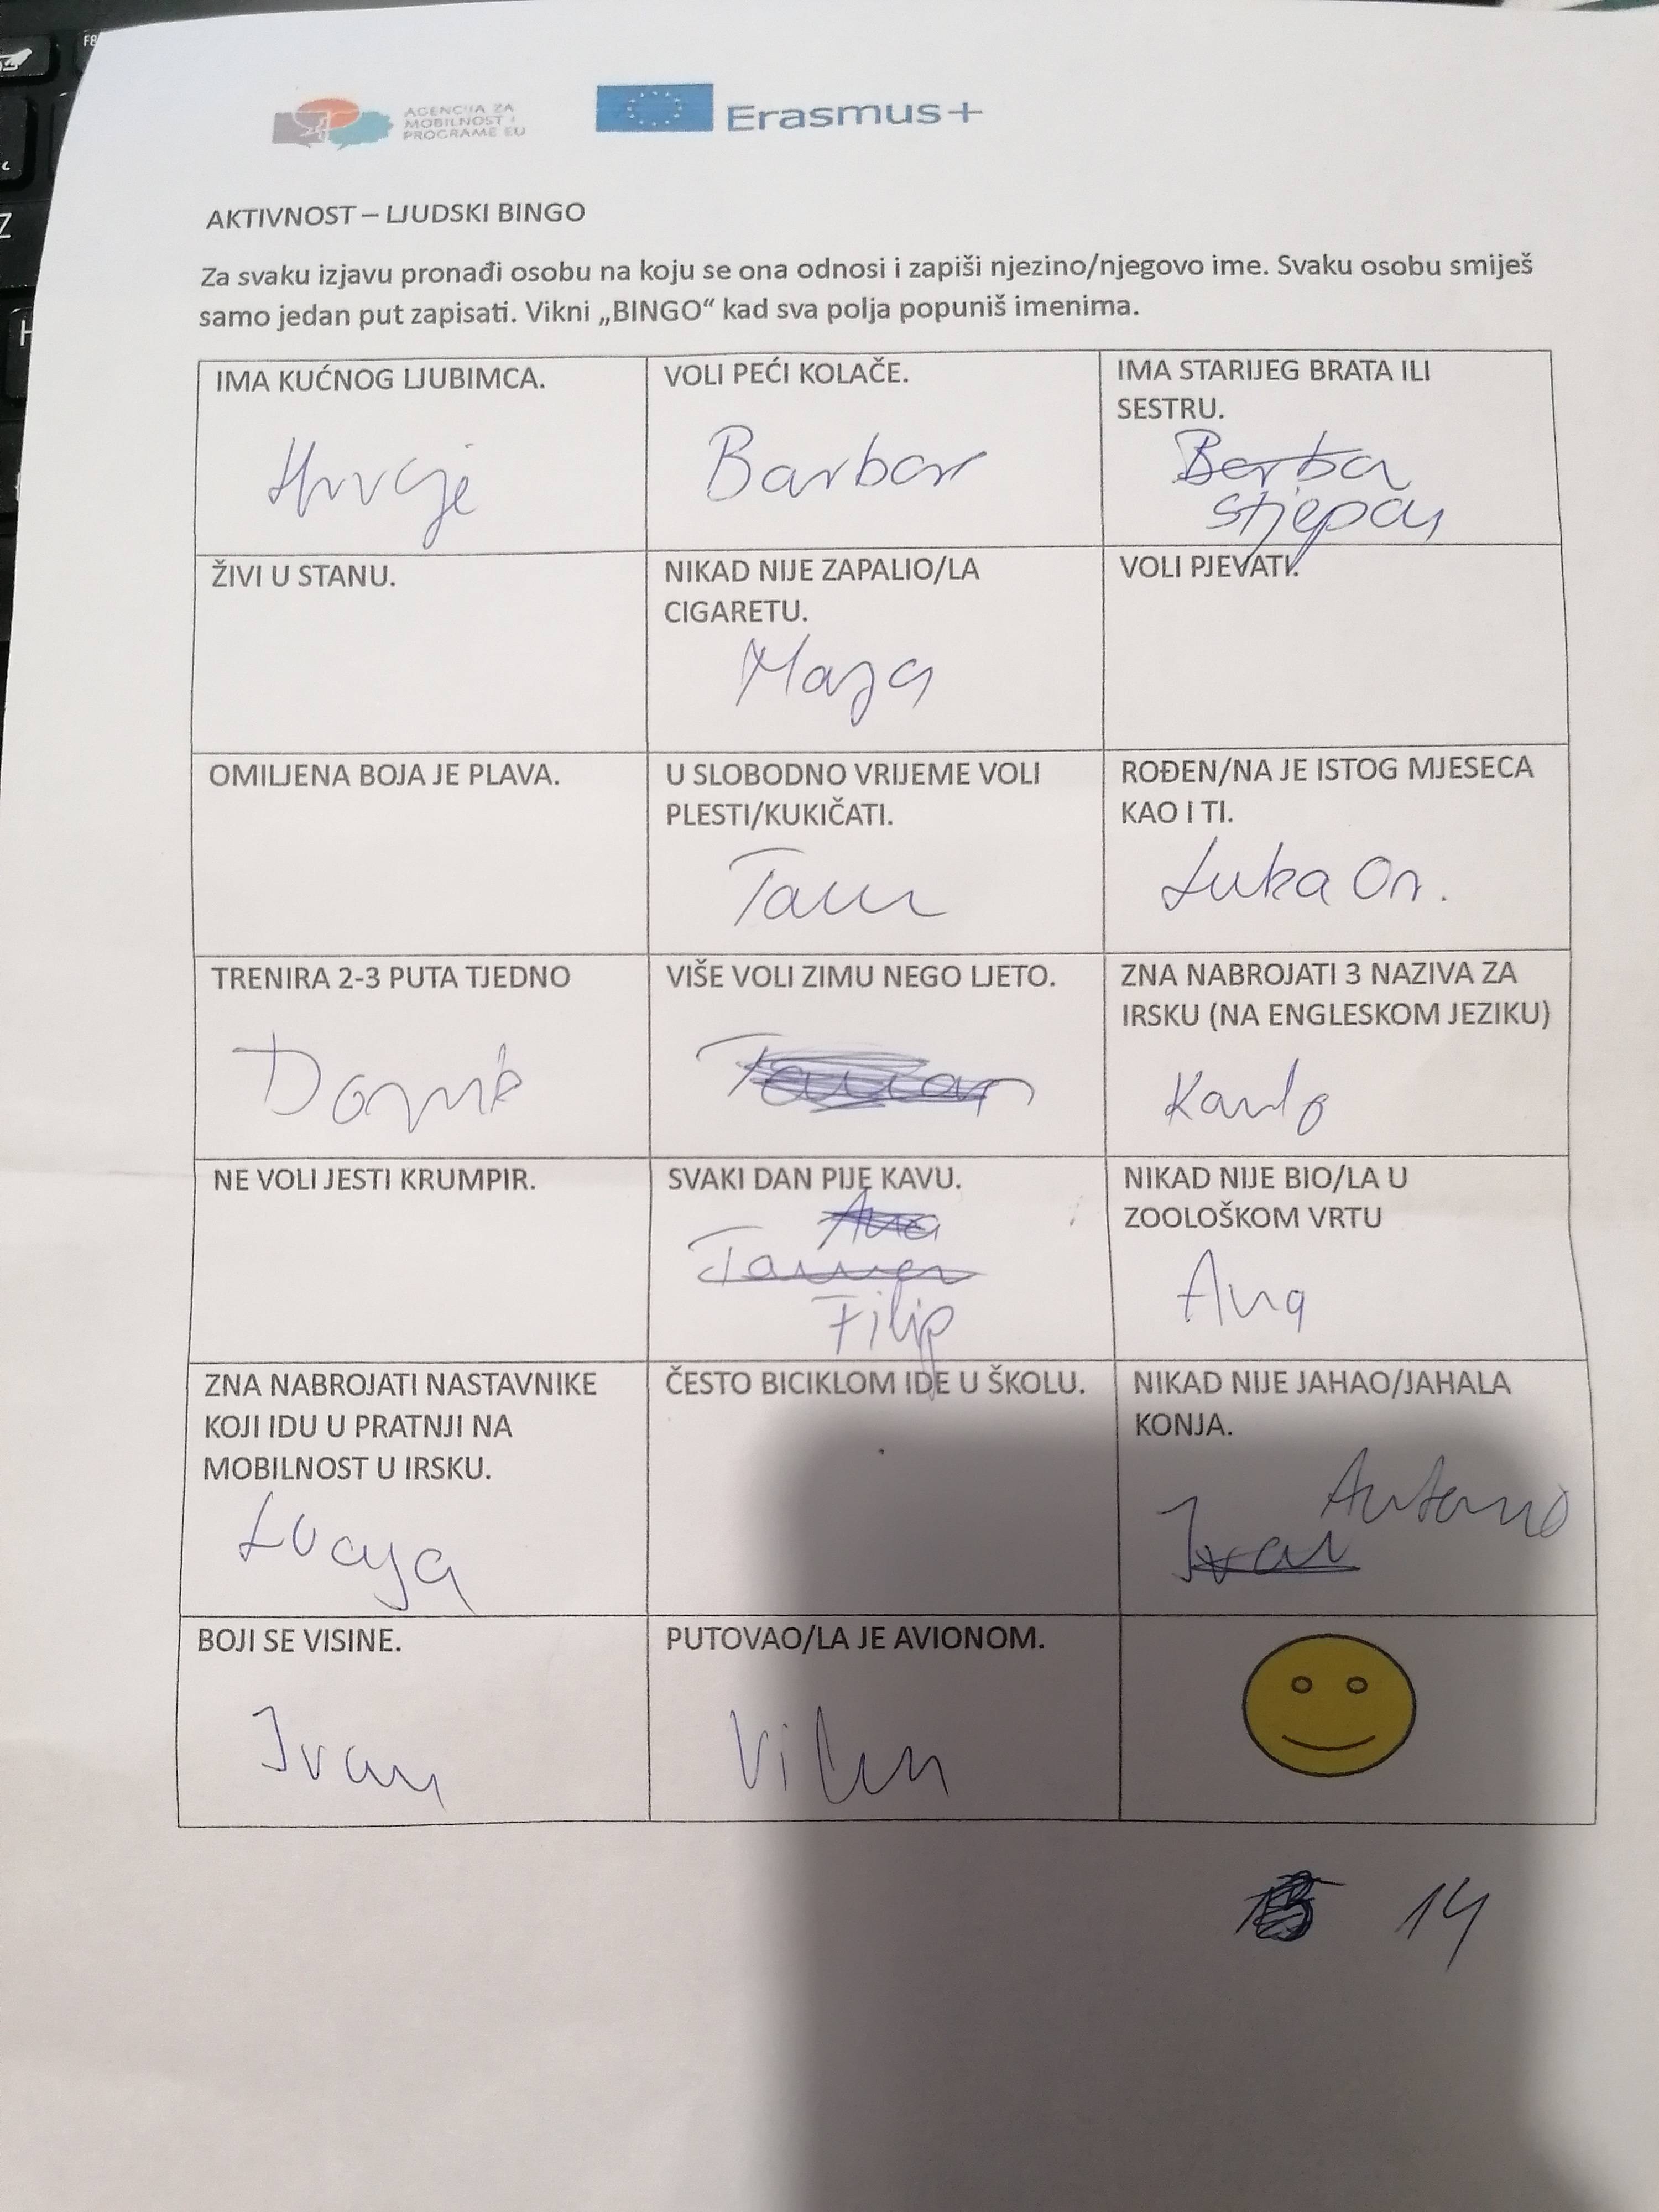 F8
Z
H
AGENCIJA ZA
MOBILNOST I
PROGRAME EU
Erasmus+
AKTIVNOST – LJUDSKI BINGO
Za svaku izjavu pronađi osobu na koju se ona odnosi i zapiši njezino/njegovo ime. Svaku osobu smiješ
samo jedan put zapisati. Vikni „BINGO“ kad sva polja popuniš imenima.
IMA KUĆNOG LJUBIMCA.
Hrvoje
VOLI PEĆI KOLAČE.
Barbara
IMA STARIJEG BRATA ILI
SESTRU.
Stjepan
ŽIVI U STANU.
NIKAD NIJE ZAPALIO/LA
CIGARETU.
Maja
VOLI PJEVATI.
OMILJENA BOJA JE PLAVA.
U SLOBODNO VRIJEME VOLI
PLESTI/KUKIČATI.
ROĐEN/NA JE ISTOG MJESECA
KAO I TI.
Luka On.
TRENIRA 2-3 PUTA TJEDNO
VIŠE VOLI ZIMU NEGO LJETO.
ZNA NABROJATI 3 NAZIVA ZA
IRSKU (NA ENGLESKOM JEZIKU)
Karlo
NE VOLI JESTI KRUMPIR.
SVAKI DAN PIJE KAVU.
Ana
Filip
NIKAD NIJE BIO/LA U
ZOOLOŠKOM VRTU
Ana
ZNA NABROJATI NASTAVNIKE
KOJI IDU U PRATNJI NA
MOBILNOST U IRSKU.
ČESTO BICIKLOM IDE U ŠKOLU.
NIKAD NIJE JAHAO/JAHALA
KONJA.
Antonio
Ivan
BOJI SE VISINE.
Ivan
PUTOVAO/LA JE AVIONOM.
14